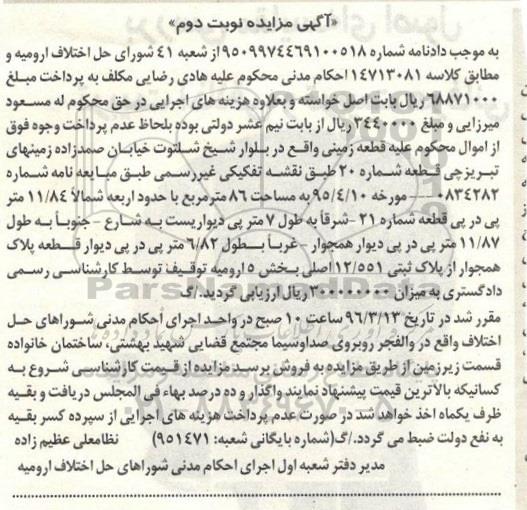 «آگهی مزایده نوبت دوم»
به موجب دادنامه شماره ۹۵۰۹۹۷۴۴۶۹۱۰۰۵۱۸ از شعبه ۴۱ شورای حل اختلاف ارومیه و
مطابق کلاسه ۱۴۷۱۳۰۸۱ احکام مدنی محکوم علیه هادی رضایی مکلف به پرداخت مبلغ
۶۸۸۷۱۰۰۰ ریال بابت اصل خواسته و بعلاوه هزینه های اجرایی در حق محکوم له مسعود
میرزایی و مبلغ ۳۴۴۰۰۰۰ ریال از بابت نیم عشر دولتی بوده بلحاظ عدم پرداخت وجوه فوق
از اموال محکوم علیه قطعه زمینی واقع در بلوار شیخ شلتوت خیابان صمدزاده زمینهای
تبریزچی قطعه شماره ۲۰ طبق نقشه تفکیکی غیررسمی طبق مبایعه نامه شماره
۰۸۳۴۲۸۲ - مورخه ۹۵/۴/۱۰ به مساحت ۸۶ مترمربع با حدود اربعه شمالاً ۱۱/۸۴ متر
پی در پی قطعه شماره ۲۱ - شرقاً به طول ۷ متر پی دیواریست به شارع - جنوباً به طول
۱۱/۸۷ متر پی در پی دیوار همجوار - غرباً بطول ۶/۸۲ متر پی در پی دیوار قطعه پلاک
همجوار از پلاک ثبتی ۱۲/۵۵۱ اصلی بخش ۵ ارومیه توقیف توسط کارشناسی رسمی
دادگستری به میزان ۳۰۰۰۰۰۰۰۰ ریال ارزیابی گردید./گ
مقرر شد در تاریخ ۹۶/۳/۱۳ ساعت ۱۰ صبح در واحد اجرای احکام مدنی شوراهای حل
اختلاف واقع در والفجر روبروی صداوسیما مجتمع قضایی شهید بهشتی، ساختمان خانواده
قسمت زیرزمین از طریق مزایده به فروش برسد مزایده از قیمت کارشناسی شروع به
کسانیکه بالاترین قیمت پیشنهاد نمایند واگذار و ده درصد بهاء فی المجلس دریافت و بقیه
ظرف یکماه اخذ خواهد شد در صورت عدم پرداخت هزینه های اجرایی از سپرده کسر بقیه
به نفع دولت ضبط می گردد./گ(شماره بایگانی شعبه: ۹۰۱۴۷۱) نظامعلی عظیم زاده
مدیر دفتر شعبه اول اجرای احکام مدنی شوراهای حل اختلاف ارومیه
ParsNamadData